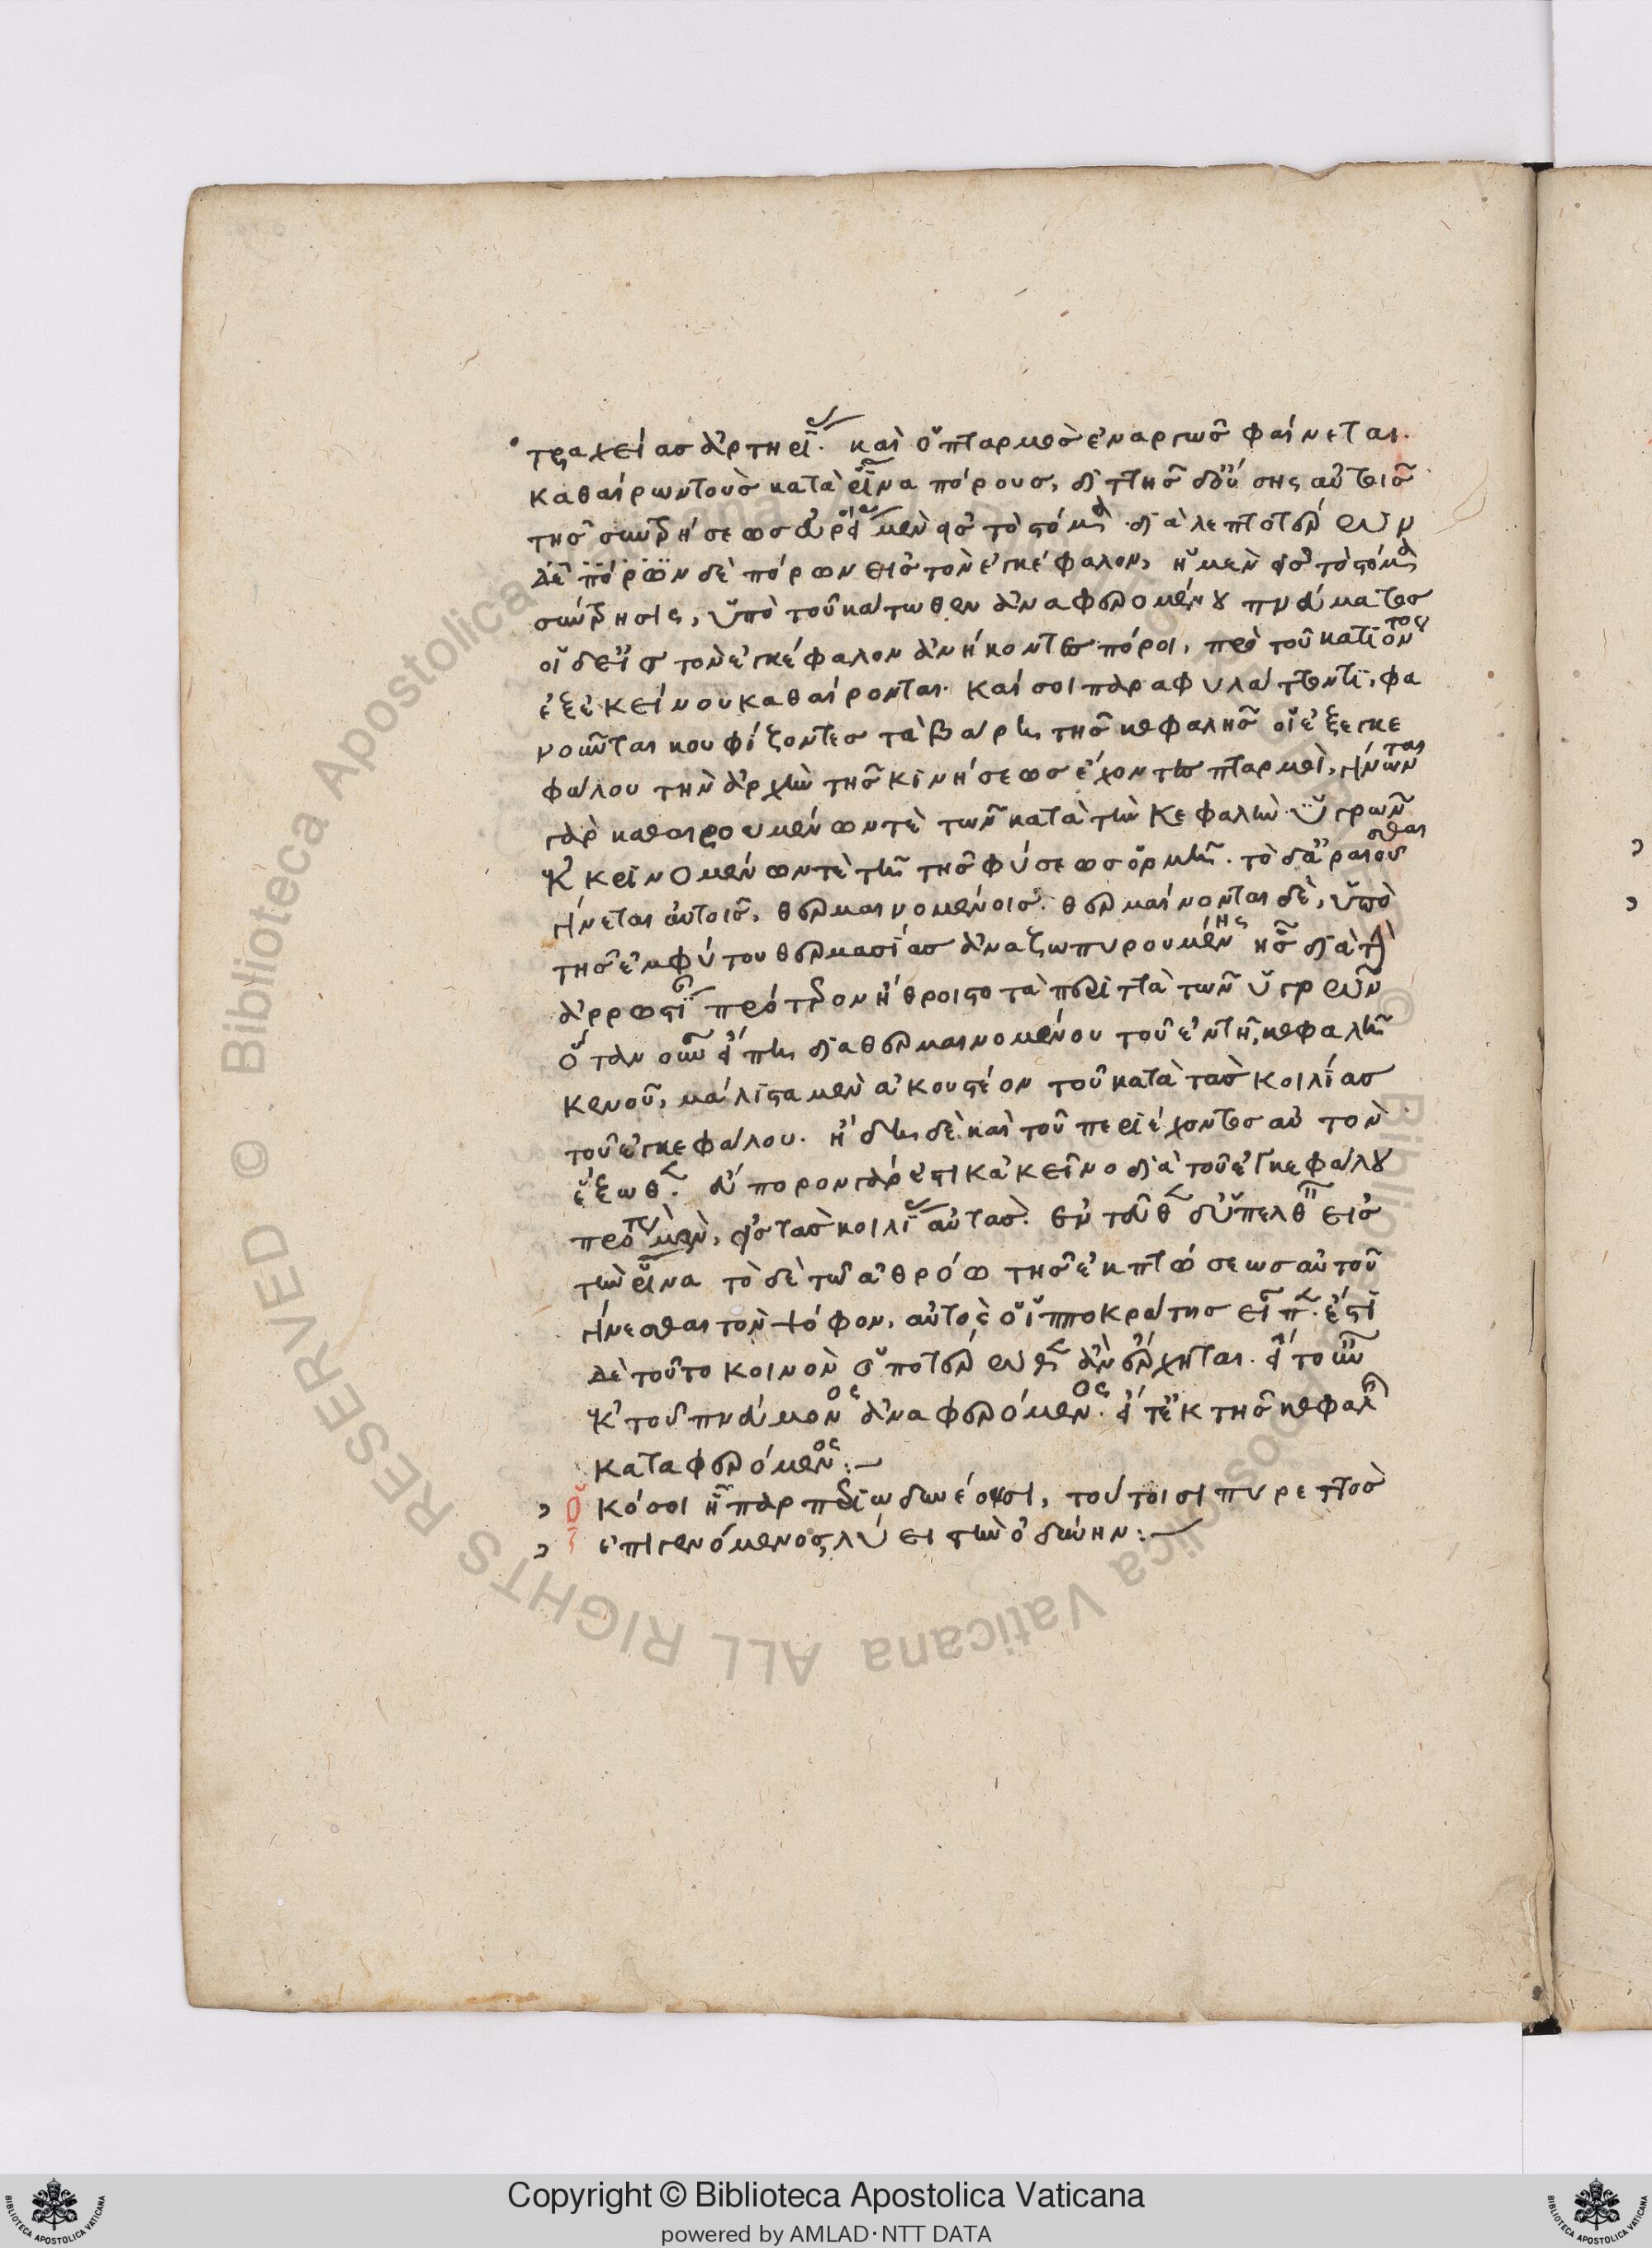 τραχείας ἀρτηρίας. καὶ ὁ πταρμὸς ἐναργῶς φαίνεται
καθαίρων τοὺς κατὰ ῥῖνα πόρους, διττῆς δ' οὔσης αὐτοῖς
τῆς συντρήσεως εὐρείας μὲν εἰς τὸ στόμα διὰ λεπτοτέρων
δὲ πόρων δὲ πόρων εἰς τὸν ἐγκέφαλον, ἡ μὲν εἰς τὸ στόμα
σύντρησις, ὑπὸ τοῦ κάτωθεν ἀναφερομένου πνεύματος
οἱ δ' εἰς τὸν ἐγκέφαλον ἀνήκοντες πόροι, πρὸ τοῦ κατιόντος
ἐξ ἐκείνου καθαίρονται. καί σοι παραφυλάττοντι, φα
νοῦνται κουφίζοντες τὰ βάρη τῆς κεφαλῆς οἱ ἐξ ἐγκε
φάλου τὴν ἀρχὴν τῆς κινήσεως ἔχοντες πταρμοί, γίνωνται
γὰρ καθαιρουμένων τὲ τῶν κατὰ τὴν κεφαλὴν ὑγρῶν
ἐκκρινομένων τὲ τῇ τῆς φύσεως ὁρμῇ. τὸ δ' ἀραιοῦσθαι
γίνεται αὐτοῖς, θερμαινομένοις. θερμαίνονται δὲ, ὑπὸ
τῆς ἐμφύτου θερμασίας ἀναζωπυρουμένης ἧς διὰ τὴν
ἀρρωστίαν πρότερον ἤθροιστο τὰ περιττὰ τῶν ὑγρῶν
ὅταν οὖν εἴπῃ διαθερμαινομένου τοῦ ἐν τῇ κεφαλῇ
κενοῦ, μάλιστα μὲν ἀκουστέον τοῦ κατὰ τὰς κοιλίας
τοῦ ἐγκεφάλου. ἤδη δὲ καὶ τοῦ περιέχοντος αὐτὸν
ἔξωθεν. εὔπορον γάρ ἐστι κἀκεῖνο διὰ τοῦ ἐγκεφάλου
πρῶτον μὲν, εἰς τὰς κοιλίας αὐτάς. ἐντεῦθεν δ' ὑπελθεῖν εἰς
τὴν ῥῖνα τὸ δὲ τῷ ἀθρόῳ τῆς ἐκπτώσεως αὐτοῦ
γίνεσθαι τὸν ψόφον, αὐτὸς ὁ ἱπποκράτης εἶπεν. ἐστὶ
δὲ τοῦτο κοινὸν ὁποτέρωθεν ἂν ἔρχηται. εἴτ' οὖν
ἐκ τοῦ πνεύμονος ἀναφερόμενος. εἴτ' ἐκ τῆς κεφαλῆς
καταφερόμενος:—
Ὁκόσοι ἧπαρ περιωδυνέουσι, τούτοισι πυρετὸς
ἐπιγενόμενος λύει τὴν ὀδύνην:—
Copyright © Biblioteca Apostolica Vaticana
powered by AMLAD·NTT DATA